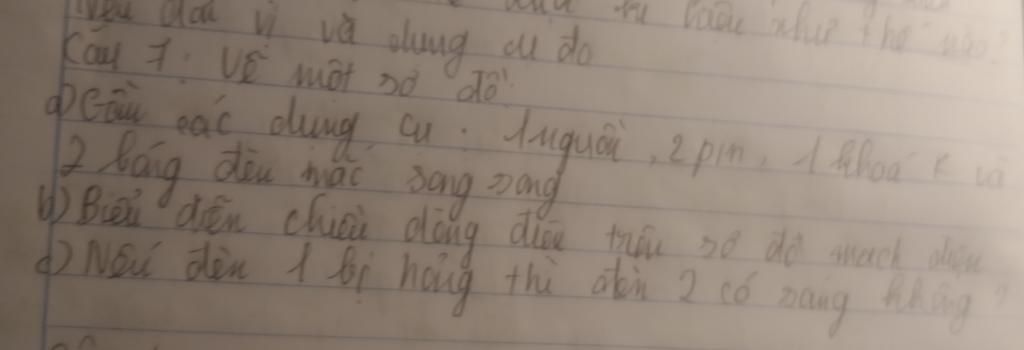 Nêu đơn vị và dụng cụ đo
Câu 7: Vẽ một sơ đồ
a) Gồm các dụng cụ: 1 nguồn, 2 pin, 1 khoá K và
2 bóng đèn mắc song song
b) Biểu diễn chiều dòng điện trên sơ đồ mạch điện
c) Nếu đèn 1 bị hỏng thì đèn 2 có sáng không?